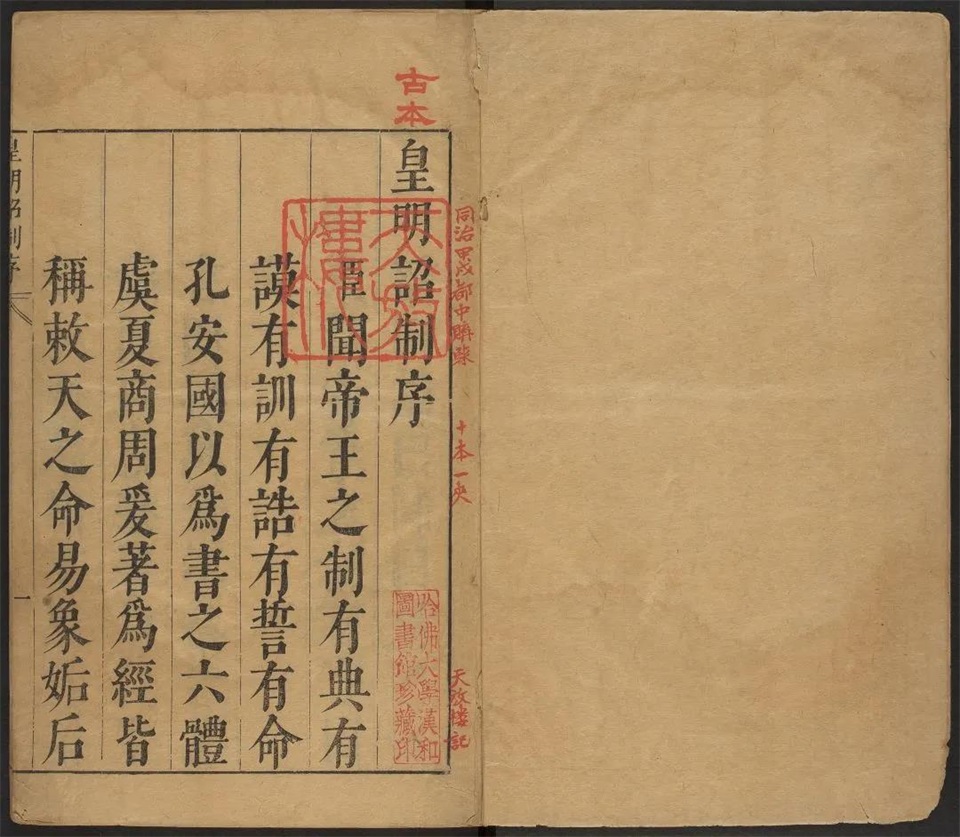 同治甲戌都中購
十本一夾
天放楼記
古本
皇明詔制序
哈佛大學漢和
圖書館珍藏印
臣聞帝王之制有典有
謨有訓有誥有誓有命
孔安國以爲書之六體
虞夏商周爰著爲經皆
稱敕天之命易象姤后
皇明詔制序
一